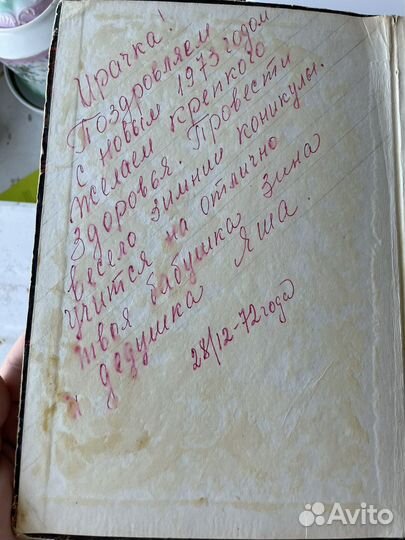 Ирачка!
Поздровляем
с новым 1973 годом
желаем крепкого
здоровья. Провести
весело зимнии коникулы.
учится на отлично
твоя бабушка Зина
и дедушка Яша.
28/12-72 года
Avito